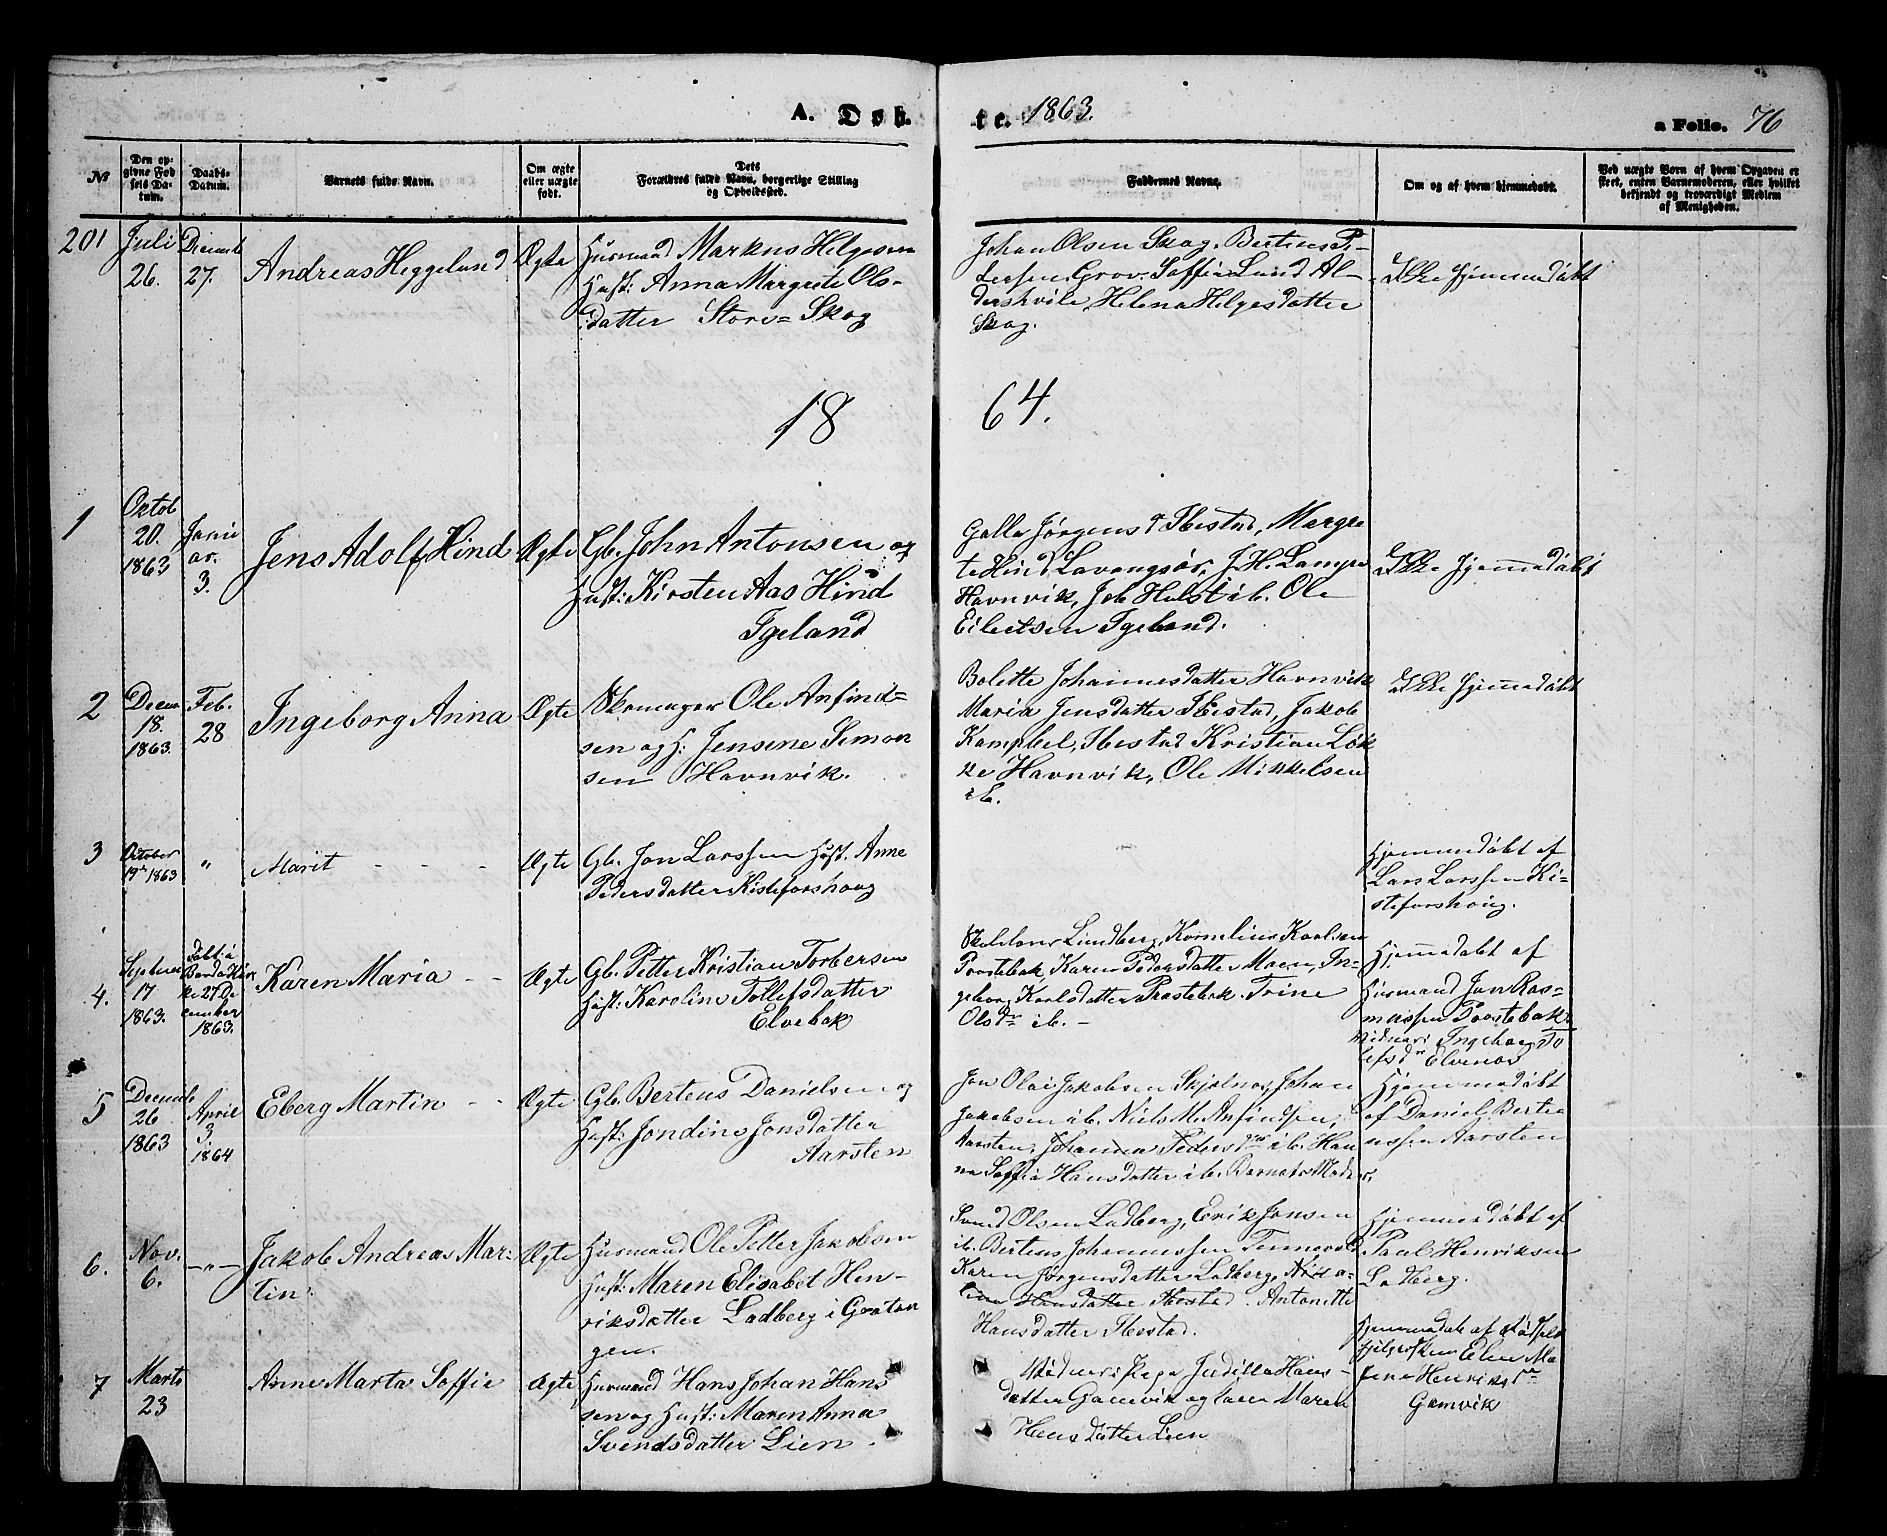 A. Døb.
te. 1863.
a Folio. 76
№
Den op-
givne Fød
sels Da-
tum.
Daabs-
Datum.
Barnets fulde Navn.
Om ægte
eller uægte
født.
Dets
Forældres fulde Navn, borgerlige Stilling
og Opholdssted.
Faddernes Navne.
Om og af hvem hjemmedøbt.
Ved uægte Børn af hvem Opgaven er
skeet, enten Barnemoderen, eller hvilket
bekjendt og troværdigt Medlem
af Menigheden.
201
Juli
26.
Decemb
27.
Andreas Heggelund
Ægte
Husmand Markus Helgesen
Hust: Anna Margrete Ols-
datter Store=Skog
Johan Olsen Skog. Bertens Pe-
dersen Grov. Soffia Lund Al-
dershvile, Helena Helgesdatter
Skog.
Ikke hjemmedøbt
18
64.
1
Oktob
20.
1863
Janu
ar.
3.
Jens Adolf Hind
Ægte
Gb. John Antonsen og
Hust: Kirsten Aas Hind
Igeland
Galla Jørgensd Ibestad, Margre
te Hind Lavangsør, J. H. Lampe
Havnvik, Job Holst ib. Ole
Eilertsen Igeland.
Ikke hjemmedøbt
2
Decem
18.
1863.
Feb.
28
Ingeborg Anna
Ægte
Skomager Ole Anfind=
sen og H: Jensine Simon
sen Havnvik.
Bolette Johannesdatter Havnvik
Maria Jensdatter Ibestad, Jakob
Kampbel, Ibestad Kristian Løk
ke Havnvik, Ole Mikkelsen
ib.
Ikke hjemmedøbt
3
October
19de 1863
"
Marit - - - -
Ægte
Gb. Jon Larssen Hust. Anne
Pedersdatter Kisteforshoug
Hjemmedøbt af
Lars Larssen Ki-
steforshoug.
4.
Septemb
17
1863.
Døbt i
Bardukir
ke 27 De
cember
1863.
Karen Maria - -
Ægte
Gb. Petter Kristian Torbersen
Hust: Karoline Tollefsdatter
Elvebak
Skolelærer Lundberg, Kornelius Karlsen
Prostebak, Karen Pedersdatter Moen, In-
geborg Karlsdatter Prostebak. Trine
Olsdr ib. -
Hjemmedøbt af
Husmand Jon Ras-
mussen Prostebak
Vidner: Ingeborg To
lefsdr Elvenæs
5
Decemb
26
1863
April
3
1864
Eberg Martin - -
Ægte
Gb. Bertens Danielsen og
Hust: Jondine Jonsdatter
Aarsten
Jon Olai Jakobsen Skjelnes, Johan
Jakobsen ib. Niels M. Anfindsen,
Aarsten, Johanna Pedersdr ib. Han
na Soffia Hansdatter ib. Barnets Moder.
Hjemmedøbt
af Daniel Berte
nssen Aarsten
6.
Nov.
6.
-"-
Jakob Andreas Mar-
tin.
Ægte
Husmand Ole Petter Jakobsen
Hust: Maren Elisabet Hen-
riksdatter Ladberg i Gratan
gen.
Svend Olsen Ladberg, Erik Jonsen
ib. Bertens Johannessen Tennevold
Karen Jørgensdatter Ladberg,
Hansdatter Ibestad. Antonette
Hansdatter Ibestad.
Hjemmedøbt af
Paul Henriksen
Ladberg.
7
Marts
23
Anne Marta Soffie
Ægte
Husmand Hans Johan Hans
sen og Hust: Maren Anna
Svendsdatter Lien.
Vidner: Pige Juditta Hans-
datter Gamvik og Maren
Hansdatter Lien
Hjemmedøb af
Elen Ma
Henriksdr
Gamvik